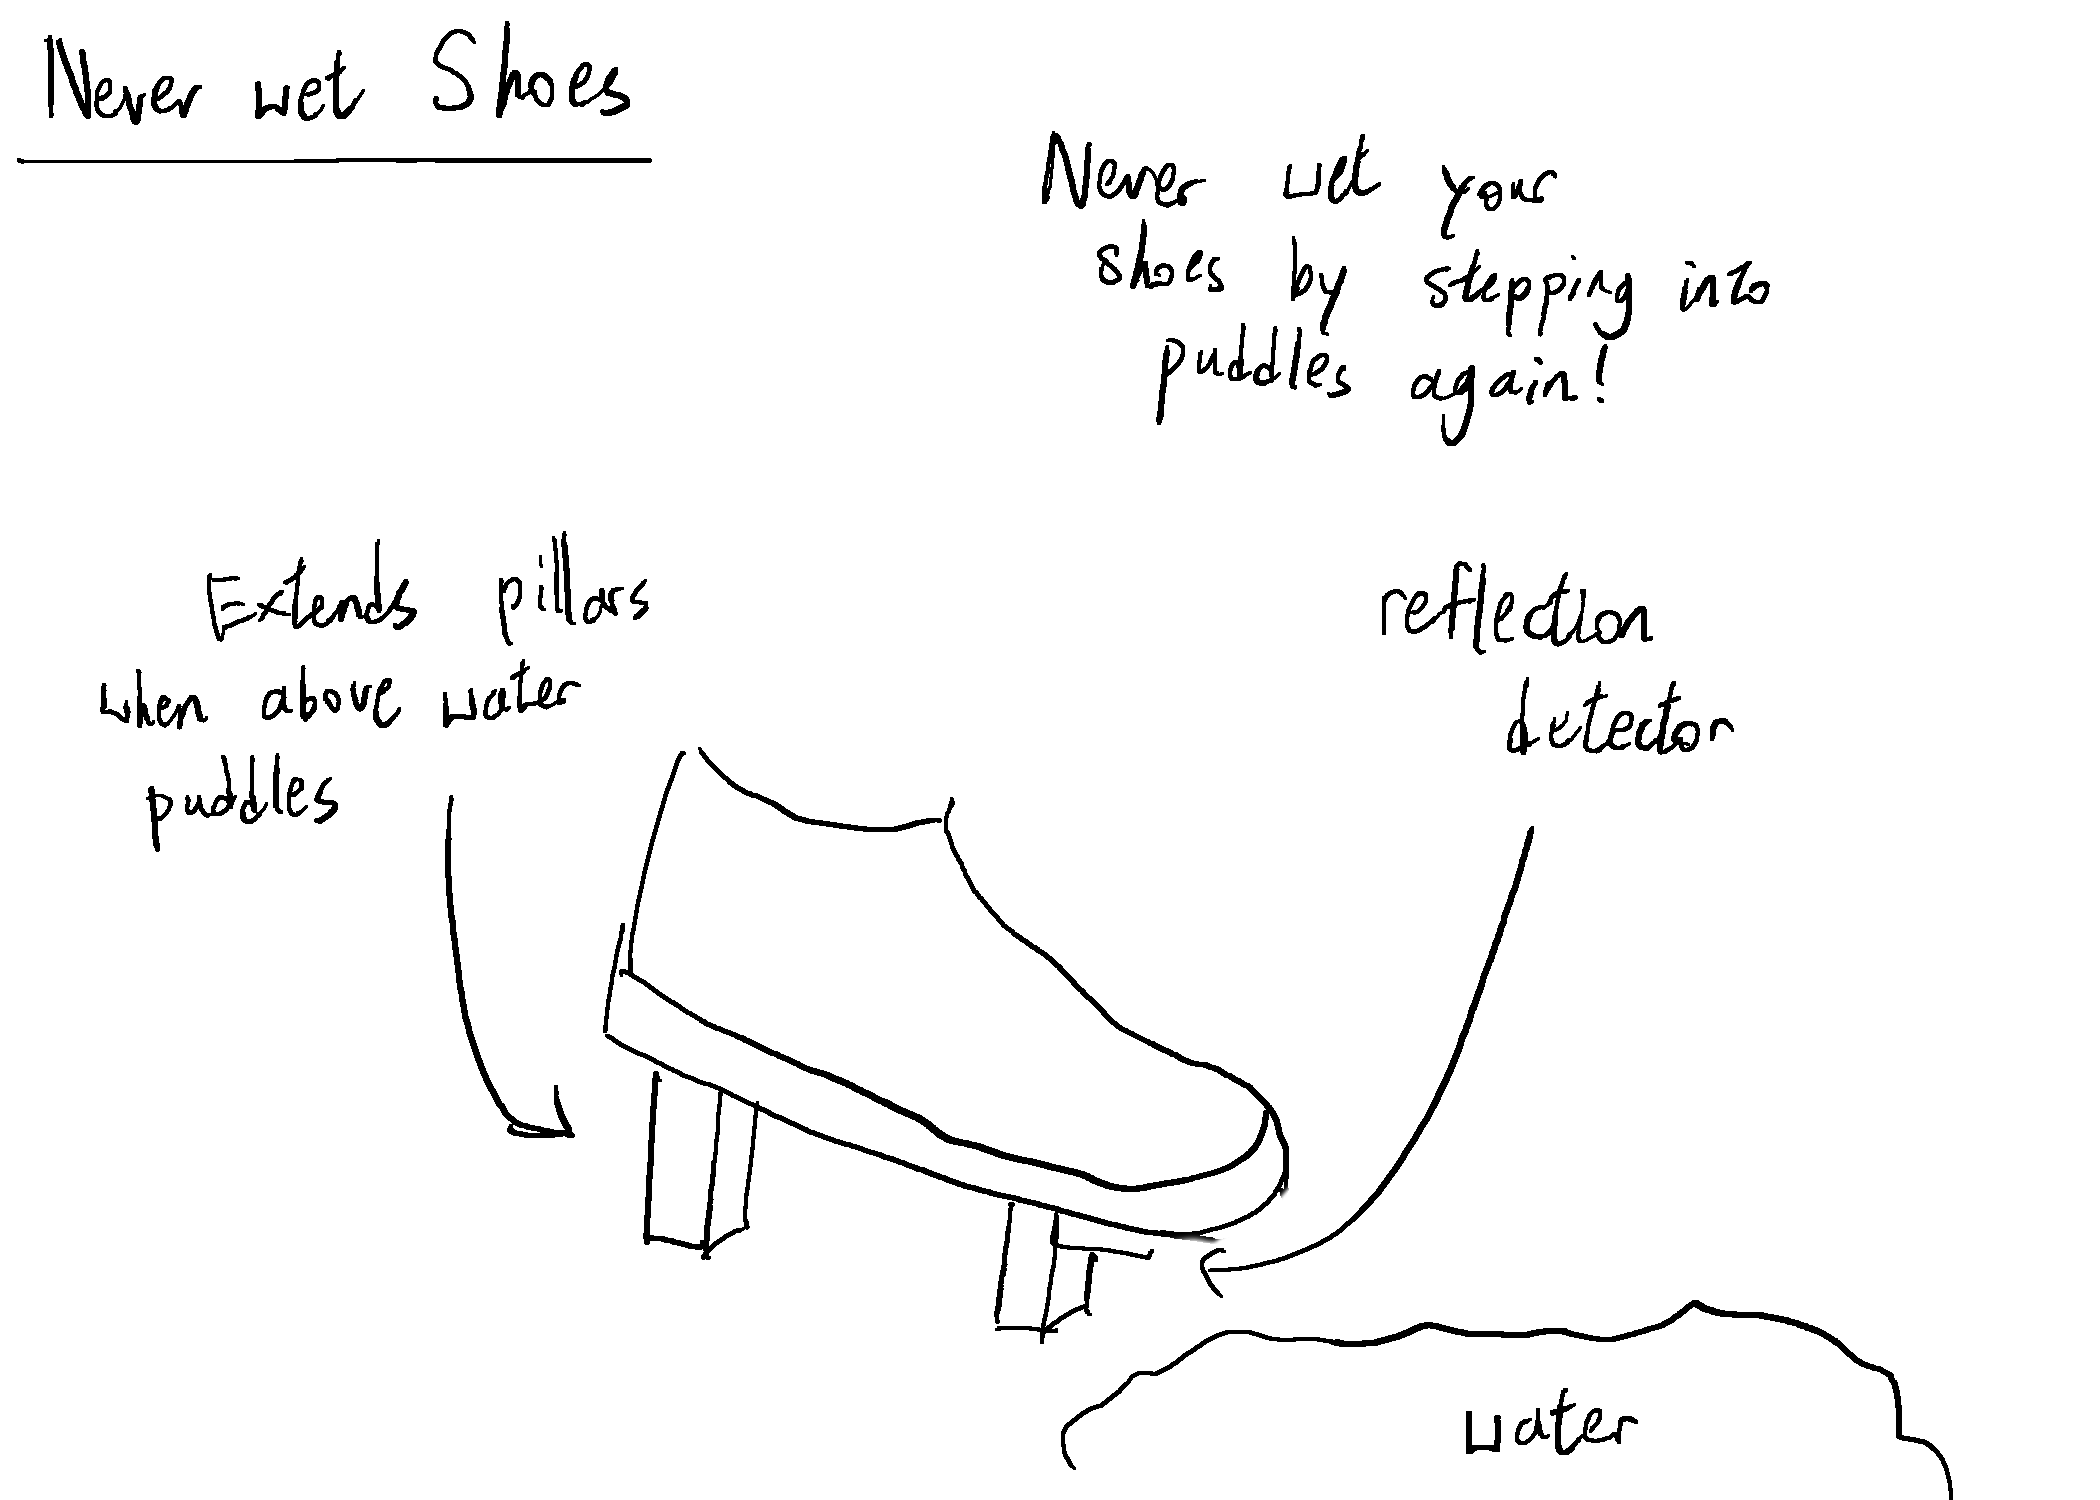 Never wet Shoes
Never wet your
shoes by stepping into
puddles again!
Extends pillars
when above water
puddles
reflection
detector
water